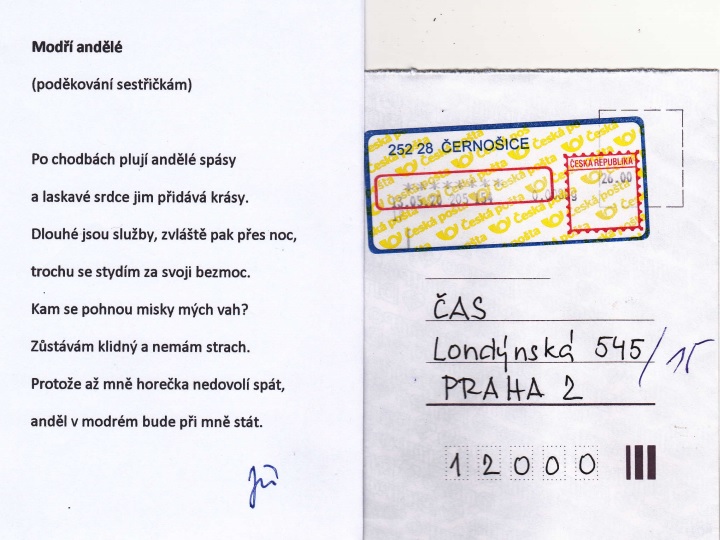 Modří andělé
(poděkování sestřičkám)
Po chodbách plují andělé spásy
a laskavé srdce jim přidává krásy.
Dlouhé jsou služby, zvláště pak přes noc,
trochu se stydím za svoji bezmoc.
Kam se pohnou misky mých vah?
Zůstávám klidný a nemám strach.
Protože až mně horečka nedovolí spát,
anděl v modrém bude při mně stát.
252 28 ČERNOŠICE
Česká pošta
ČESKÁ REPUBLIKA
********
13.05.20
20.00
ČAS
Londýnská 545/15
PRAHA 2
12000